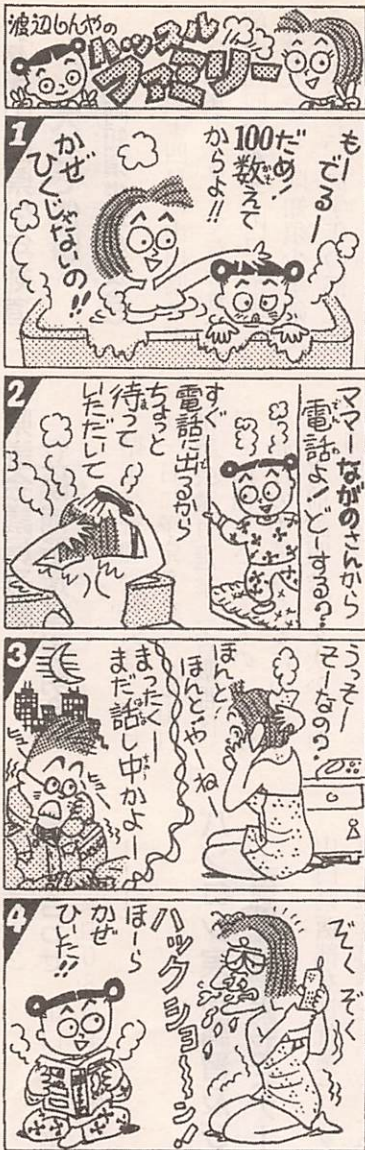 渡辺しんやの
ハッスル
ファミリー
1
もー
でるー
だめ！
100数えて
からよ!!
かぜ
ひくじゃないの!!
2
ママーながのさんから
電話よ！どーする?
すぐ
電話に出るから
ちょっと
待って
いただいて
3
うっそー
そーなの?
ほんと、
ほんと、やーねー
まったくー
まだ話し中かよー
ヒュー
ヒュー
4
ぞくぞく
ハックショ〜ン!
ほーら
かぜ
ひいた!!